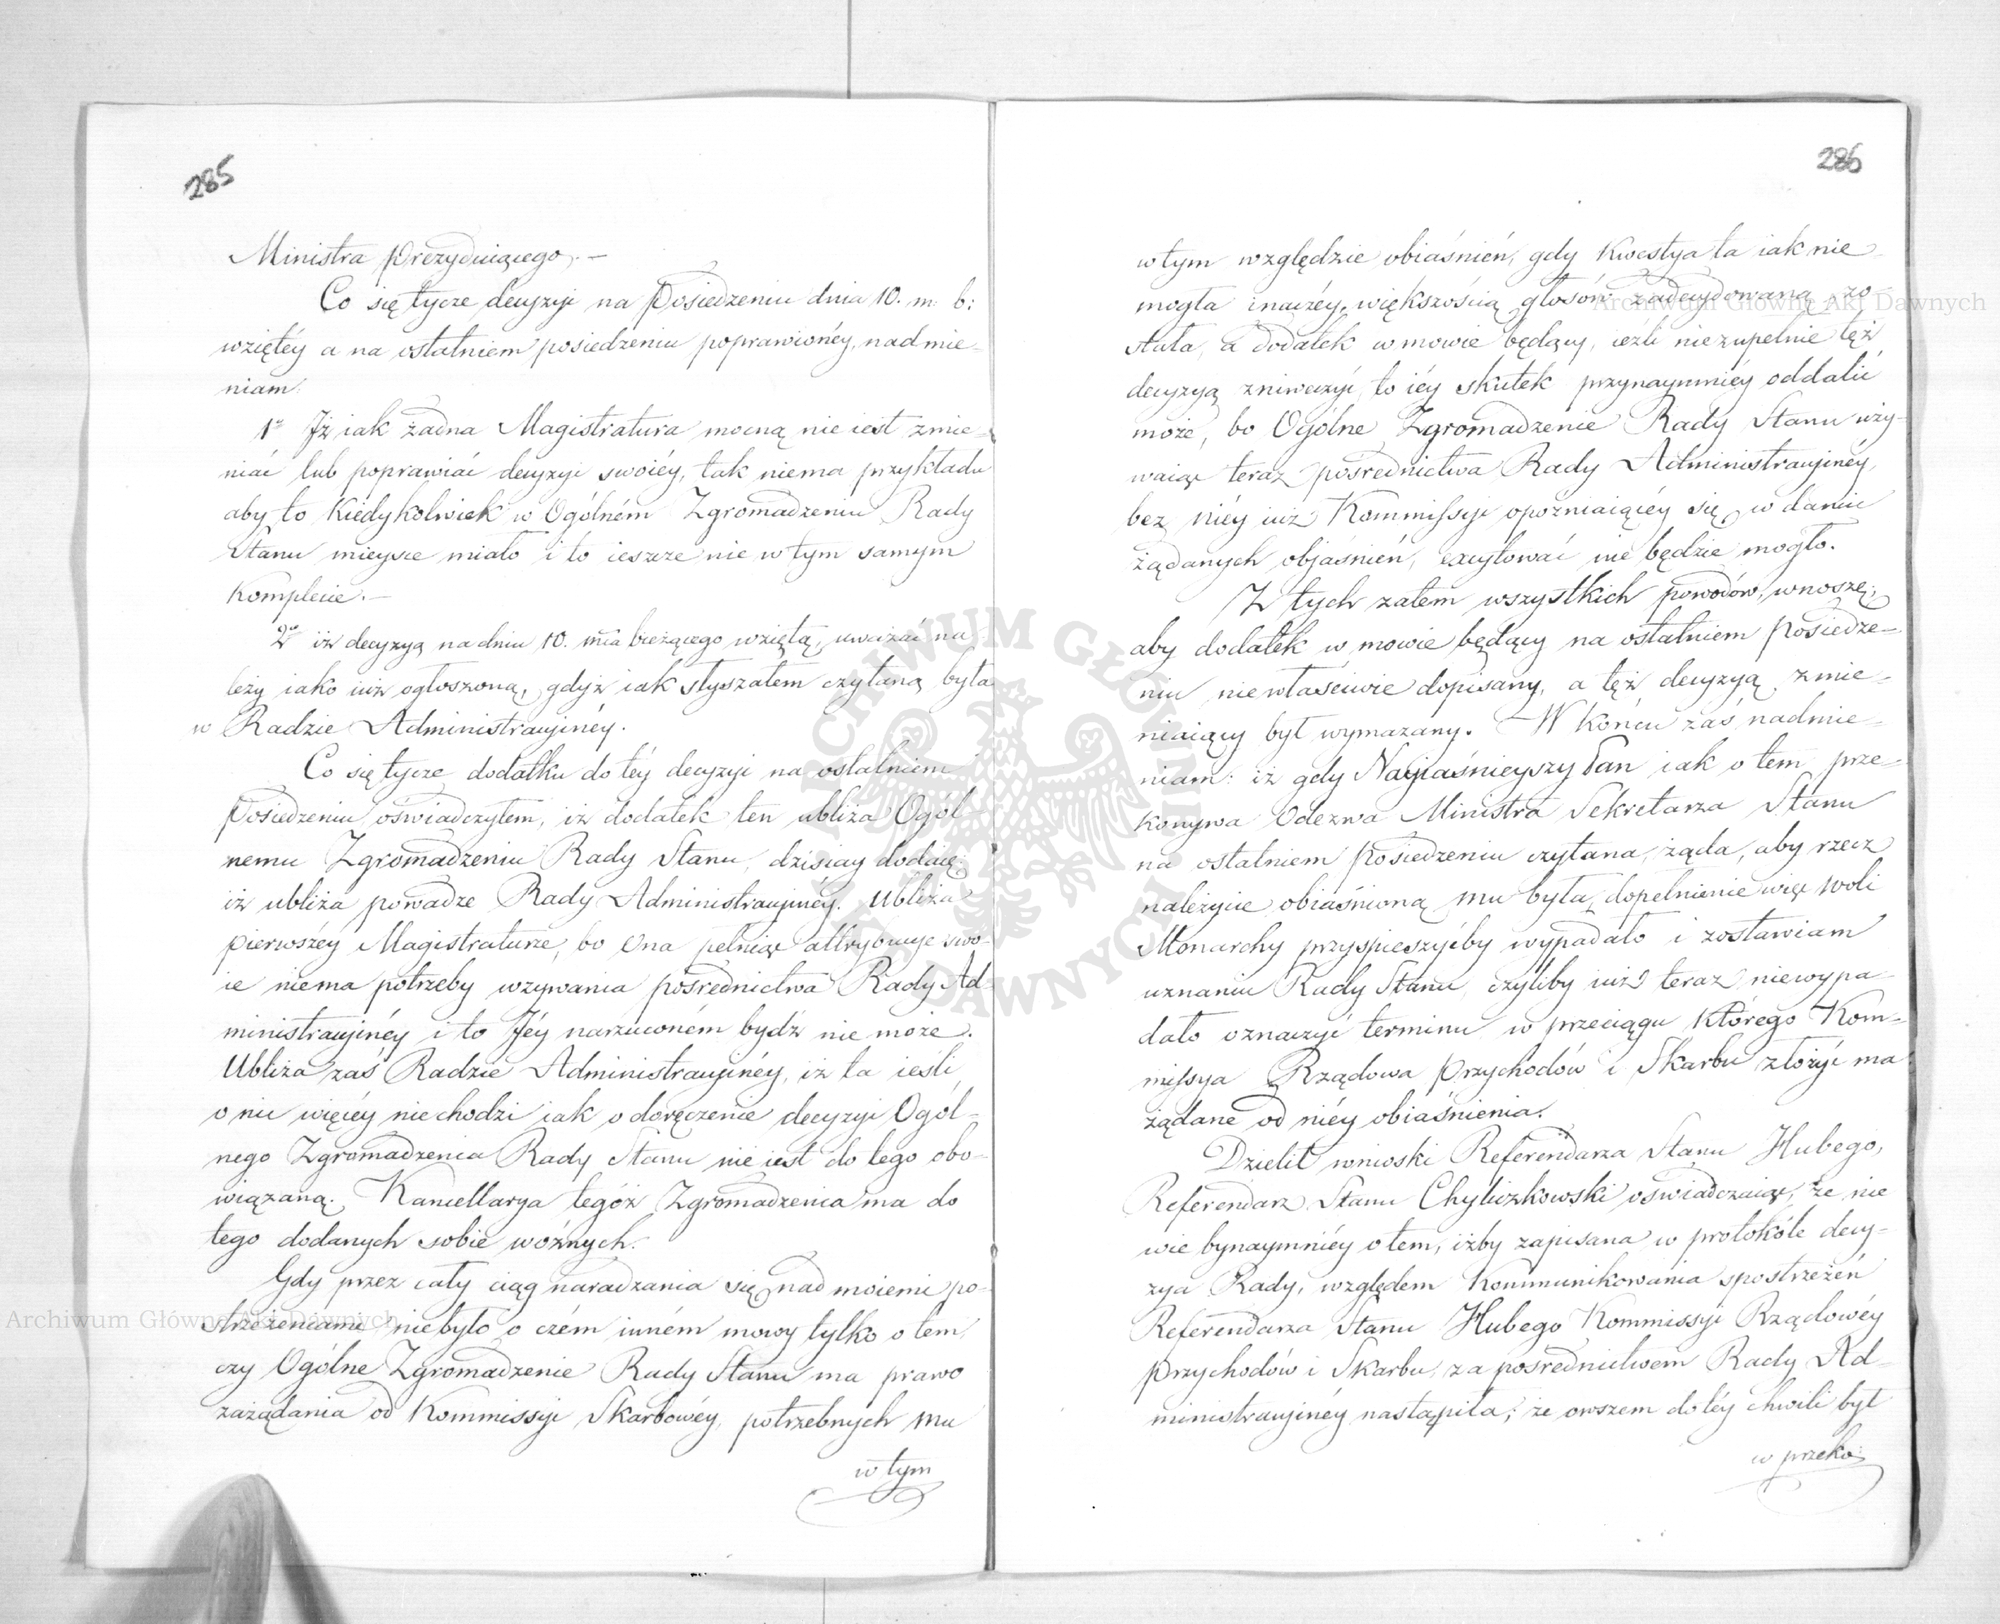 285
Ministra Prezyduiącego. —
Co się tycze decyzyi na Posiedzeniu dnia 10. m: b:
wziętéy a na ostatniem posiedzeniu poprawionéy, nadmie-
niam:
1º Jż iak żadna Magistratura mocną nie iest zmie-
niać lub poprawiać decyzyi swoiéy, tak niema przykładu
aby to kiedykolwiek w Ogólném Zgromadzeniu Rady
Stanu mieysce miało i to ieszcze nie w tym samym
Komplecie. —
2º iż decyzyą na dniu 10. mca bieżącego wziętą, uważać na-
leży iako iuż ogłoszoną, gdyż iak słyszałem czytaną była
w Radzie Administracyinéy.
Co się tycze dodatku do téy decyzyi na ostatniem
Posiedzeniu oświadczyłem, iż dodatek ten ubliża Ogól-
nemu Zgromadzeniu Rady Stanu, dzisiay dodaię:
iż ubliża powadze Rady Administracyinéy. Ubliża
pierwszéy Magistraturze, bo Ona pełniąc attrybucye swo-
ie niema potrzeby wzywania pośrednictwa Rady Ad-
ministracyinéy i to Jéy narzuconém bydź nie może.
Ubliża zaś Radzie Administracyinéy, iż ta ieśli
o nic więcéy niechodzi iak o doręczenie decyzyi Ogól-
nego Zgromadzenia Rady Stanu nie iest do tego obo-
wiązaną. Kancellarya tegóż Zgromadzenia ma do
tego dodanych sobie woźnych.
Gdy przez cały ciąg naradzania się nad moiemi po-
strzeżeniami niebyło o czém inném mowy tylko o tem,
czy Ogólne Zgromadzenie Rady Stanu ma prawo
zażądania od Kommissyi Skarbowéy, potrzebnych mu
w tym
286
w tym względzie obiaśnień, gdy kwestya ta iak nie-
mogła inaczéy, większością głosów zadecydowaną zo-
stała, a dodatek w mowie będący, ieźli niezupełnie też
decyzyą zniweczyć, to iéy skutek przynaymniéy oddalić
może, bo Ogólne Zgromadzenie Rady Stanu uży-
waiąc teraz pośrednictwa Rady Administracyinéy,
bez niéy iuż Kommissyi opozniaiącéy się w daniu
żądanych objaśnień, excytować nie będzie mogło.
Z tych zatem wszystkich powodów, wnoszę,
aby dodatek w mowie będący na ostatniem Posiedze-
niu niewłaściwie dopisany, a też decyzyą zmie-
niaiący był wymazany. W końcu zaś nadmie-
niam: iż gdy Nayiaśnieyszy Pan iak o tem prze-
konywa Odezwa Ministra Sekretarza Stanu
na ostatniem Posiedzeniu czytana, żąda, aby rzecz
należycie obiaśnioną mu była, dopełnienie więc woli
Monarchy przyspieszyćby wypadało i zostawiam
uznaniu Rady Stanu, czyliby iuż teraz niewypa-
dało oznaczyć terminu w przeciągu którego Kom-
missya Rządowa Przychodów i Skarbu złożyć ma
żądane od niéy obiaśnienia.
Dzielił wnioski Referendarza Stanu Hubego,
Referendarz Stanu Chyliczkowski oświadczaiąc, że nie
wie bynaymniéy o tem, iżby zapisana w protokóle decy-
zya Rady, względem Kommunikowania spostrzeżeń
Referendarza Stanu Hubego Kommissyi Rządowéy
Przychodów i Skarbu, za pośrednictwem Rady Ad-
ministracyinéy nastąpiła; że owszem do téy chwili był
w przeko-
Archiwum Główne Akt Dawnych
Archiwum Główne Akt Dawnych
ARCHIWUM GŁÓWNE AKT DAWNYCH